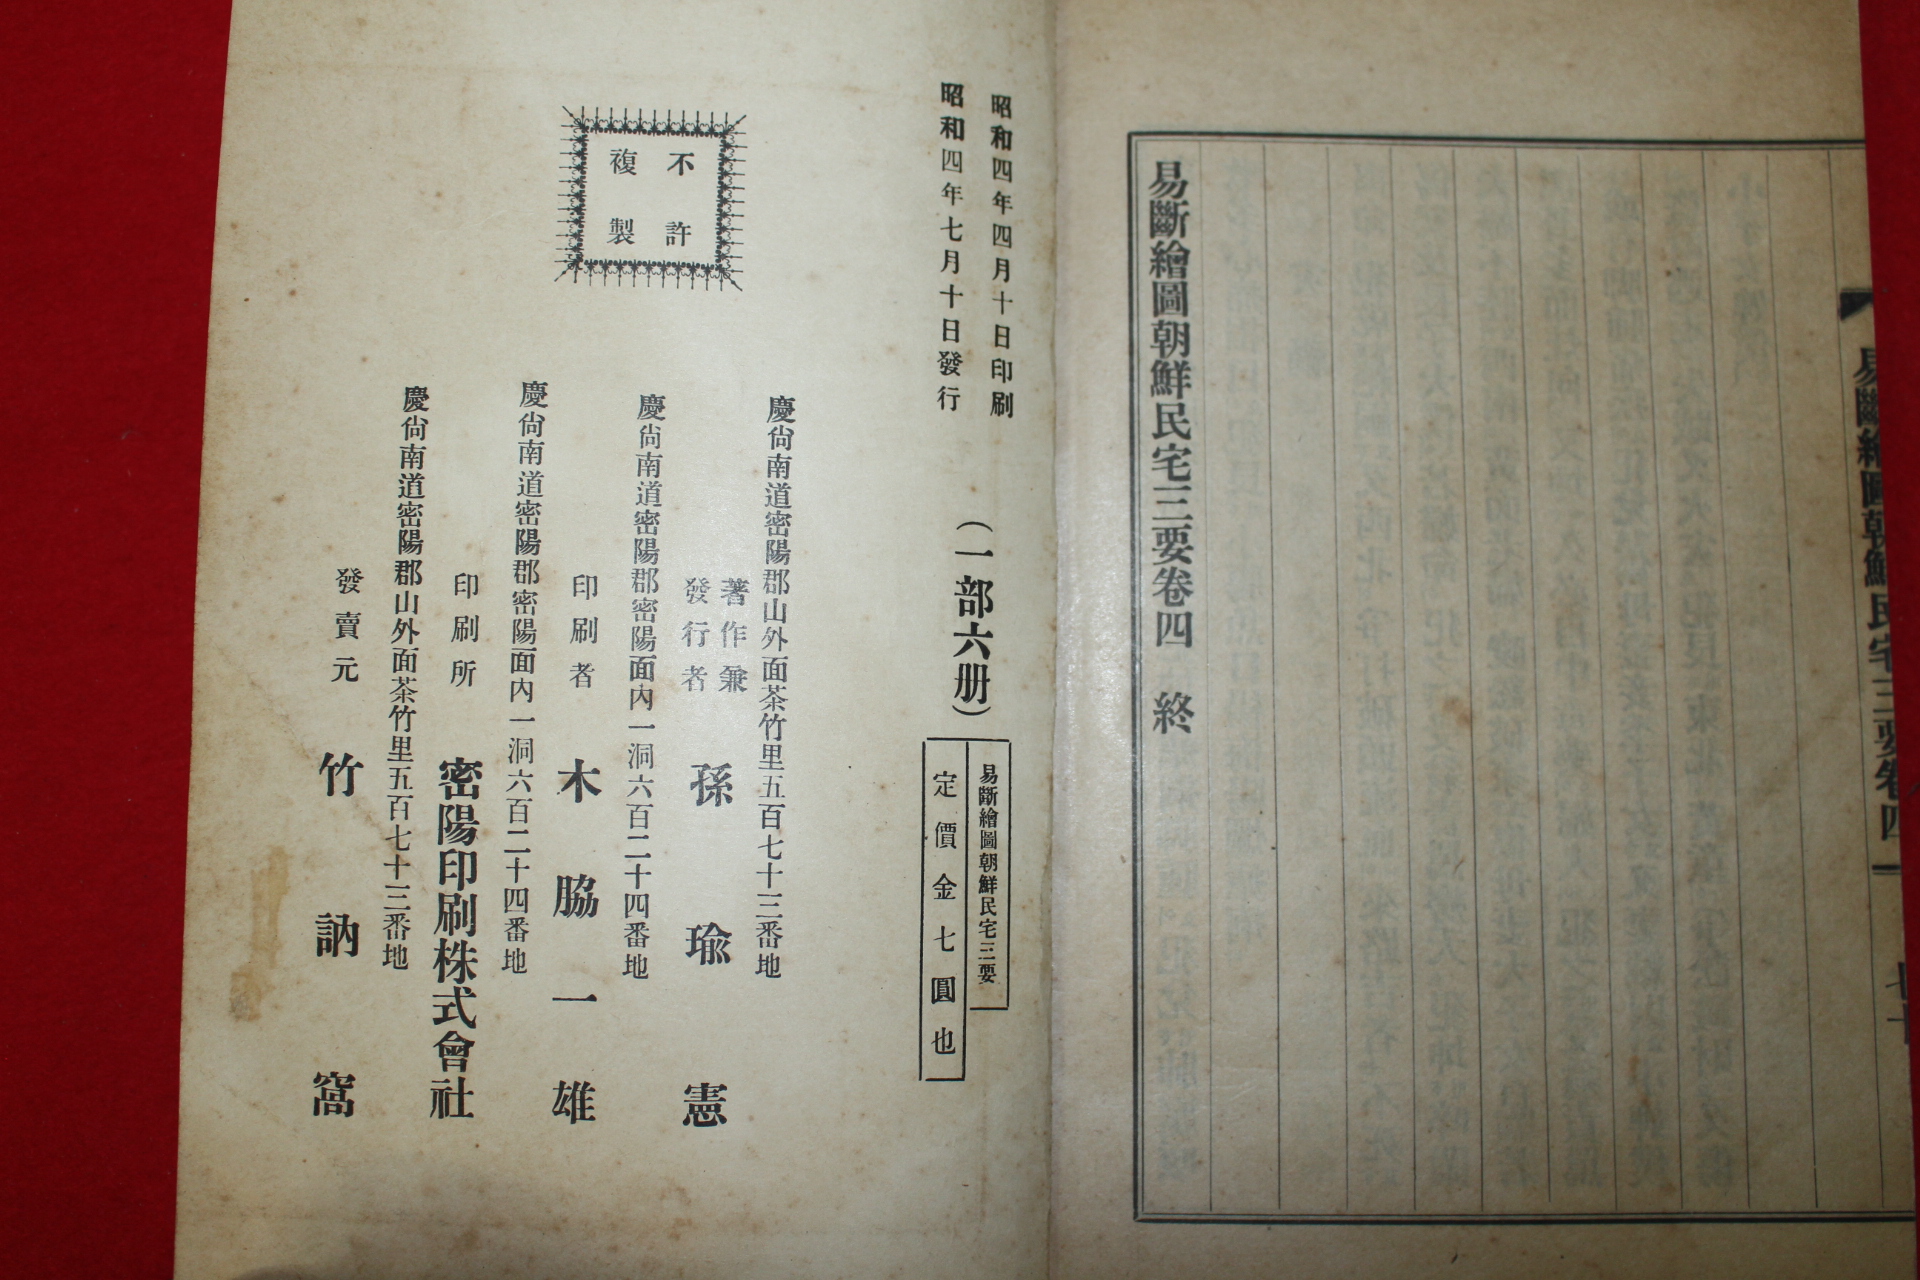 易斷繪圖朝鮮民宅三要卷四
易斷繪圖朝鮮民宅三要卷四 終
昭和四年四月十日印刷
昭和四年七月十日發行
(一部六册)
易斷繪圖朝鮮民宅三要
定價金七圓也
不許
複製
慶尙南道密陽郡山外面茶竹里五百七十三番地
著作兼
發行者
孫瑜憲
慶尙南道密陽郡密陽面內一洞六百二十四番地
印刷者 木脇一雄
慶尙南道密陽郡密陽面內一洞六百二十四番地
印刷所 密陽印刷株式會社
慶尙南道密陽郡山外面茶竹里五百七十三番地
發賣元 竹訥窩